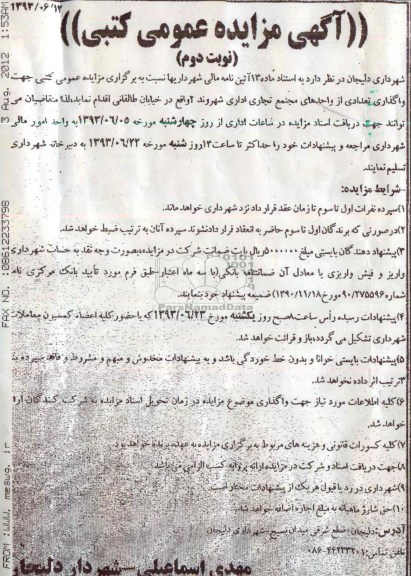 ۱۳۹۳/۰۶/۱۲
((آگهی مزایده عمومی کتبی))
(نوبت دوم)
شهرداری دلیجان در نظر دارد به استناد ماده۱۳آئین نامه مالی شهرداریها نسبت به برگزاری مزایده عمومی کتبی جهت
واگذاری تعدادی از واحدهای مجتمع تجاری اداری شهروند ۲واقع در خیابان طالقانی اقدام نماید،لذا متقاضیان می
توانند جهت دریافت اسناد مزایده در ساعات اداری از روز چهارشنبه مورخه ۱۳۹۳/۰۶/۰۵به واحد امور مالی
شهرداری مراجعه و پیشنهادات خود را حداکثر تا ساعت۱۳روز شنبه مورخه ۱۳۹۳/۰۶/۲۲ به دبیرخانه شهرداری
تسلیم نمایند.
-شرایط مزایده:
۱)سپرده نفرات اول تا سوم تا زمان عقد قرارداد نزد شهرداری خواهد ماند.
۲)درصورتی که برندگان اول تا سوم حاضر به انعقاد قرارداد نشوند سپرده آنان به ترتیب ضبط خواهد شد.
۳)پیشنهاد دهندگان بایستی مبلغ ۵۰۰۰۰۰۰ریال بابت ضمانت شرکت در مزایده،بصورت وجه نقد به حساب شهرداری
واریز و فیش واریزی یا معادل آن ضمانتنامه بانکی(با سه ماه اعتبار-طبق فرم مورد تأیید بانک مرکزی نامه
شماره۹۰/۲۷۵۵۹۶مورخ۱۳۹۰/۱۱/۱۸) ضمیمه پیشنهاد خود نمایند.
۴)پیشنهادات رسیده رأس ساعت صبح روز یکشنبه مورخ ۱۳۹۳/۰۶/۲۳ که با حضور کلیه اعضاء کمسیون معاملات
شهرداری تشکیل می گردد،باز و قرائت خواهد شد.
۵)پیشنهادات بایستی خوانا و بدون خط خوردگی باشد و به پیشنهادات مخدوش و مبهم و مشروط و فاقد سپرده بند
۳ترتیب اثر داده نخواهد شد.
۶)کلیه اطلاعات مورد نیاز جهت واگذاری موضوع مزایده در زمان تحویل اسناد مزایده به شرکت کنندگان ارائه
خواهد شد.
۷)کلیه کسورات قانونی و هزینه های مربوط به برگزاری مزایده به عهده برنده خواهد بود.
۸)جهت دریافت اسناد و شرکت در مزایده ارائه پروانه کسب الزامی می باشد.
۹)شهرداری در رد یا قبول هر یک از پیشنهادات مختار است.
۱۰)حق شارژ ماهیانه به مبلغ اجاره اضافه خواهد شد.
آدرس:دلیجان-ضلع شرقی میدان بسیج-شهرداری دلیجان
تلفن تماس:۴۴۲۲۳۲۰۱-۰۸۶
مهدی اسماعیلی-شهردار دلیجان
3 Aug. 2012 1:53AM
FAX NO. :08612233798
FROM :
ParsNamadData